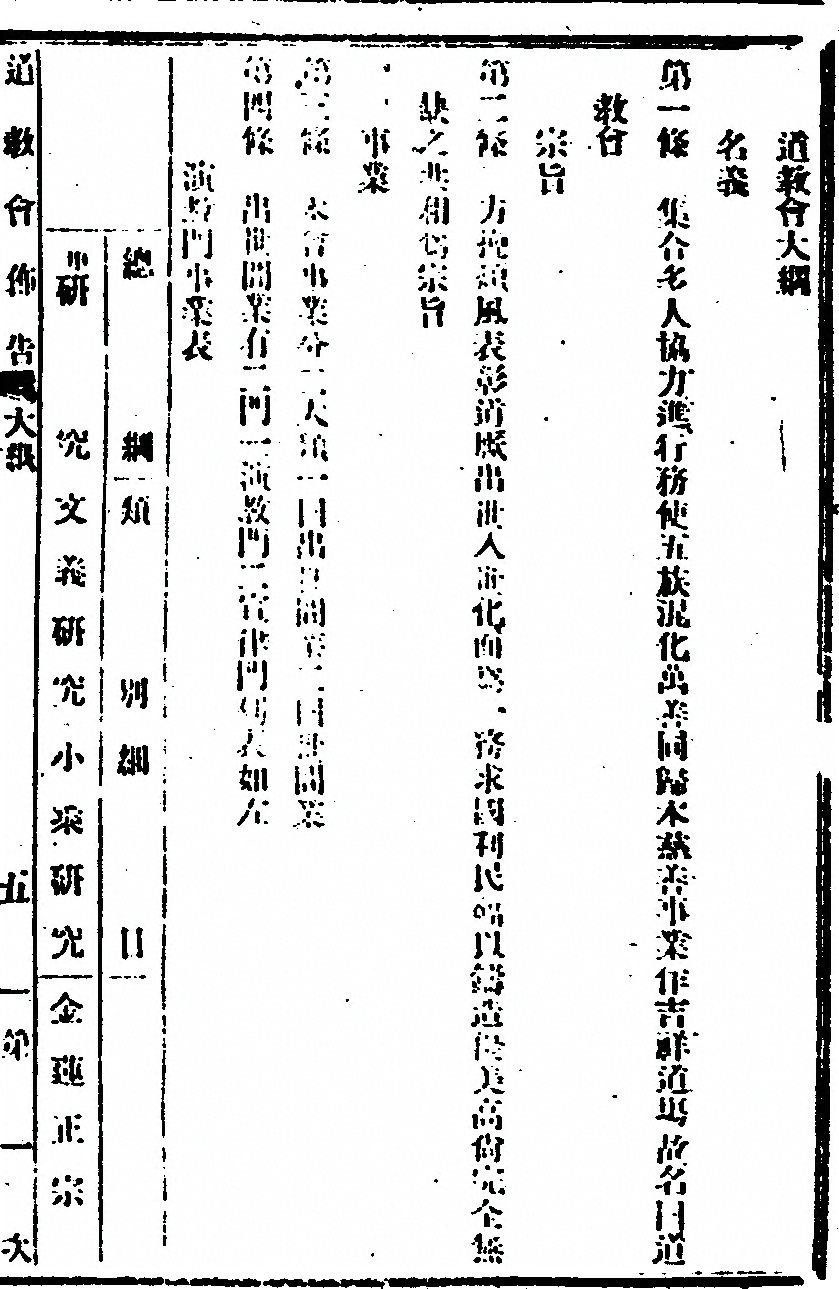 道教會大綱
名義
第一條　集合名人協力進行務使五族混化萬善同歸本慈善事業作吉祥道場故名曰道
教會
宗旨
第二條　力挽頹風表彰道脈出世入世化而為一務求國利民福以鑄造優美高尚完全無
缺之共和為宗旨
事業
第三條　本會事業分二大類一曰出世間業二曰世間業
第四條　出世間業有二門一演教門二宣律門列表如左
演教門事業表
總綱　類別　細目
研究　文義研究　小乘研究　金蓮正宗
道教會佈告　大綱　五　第一次